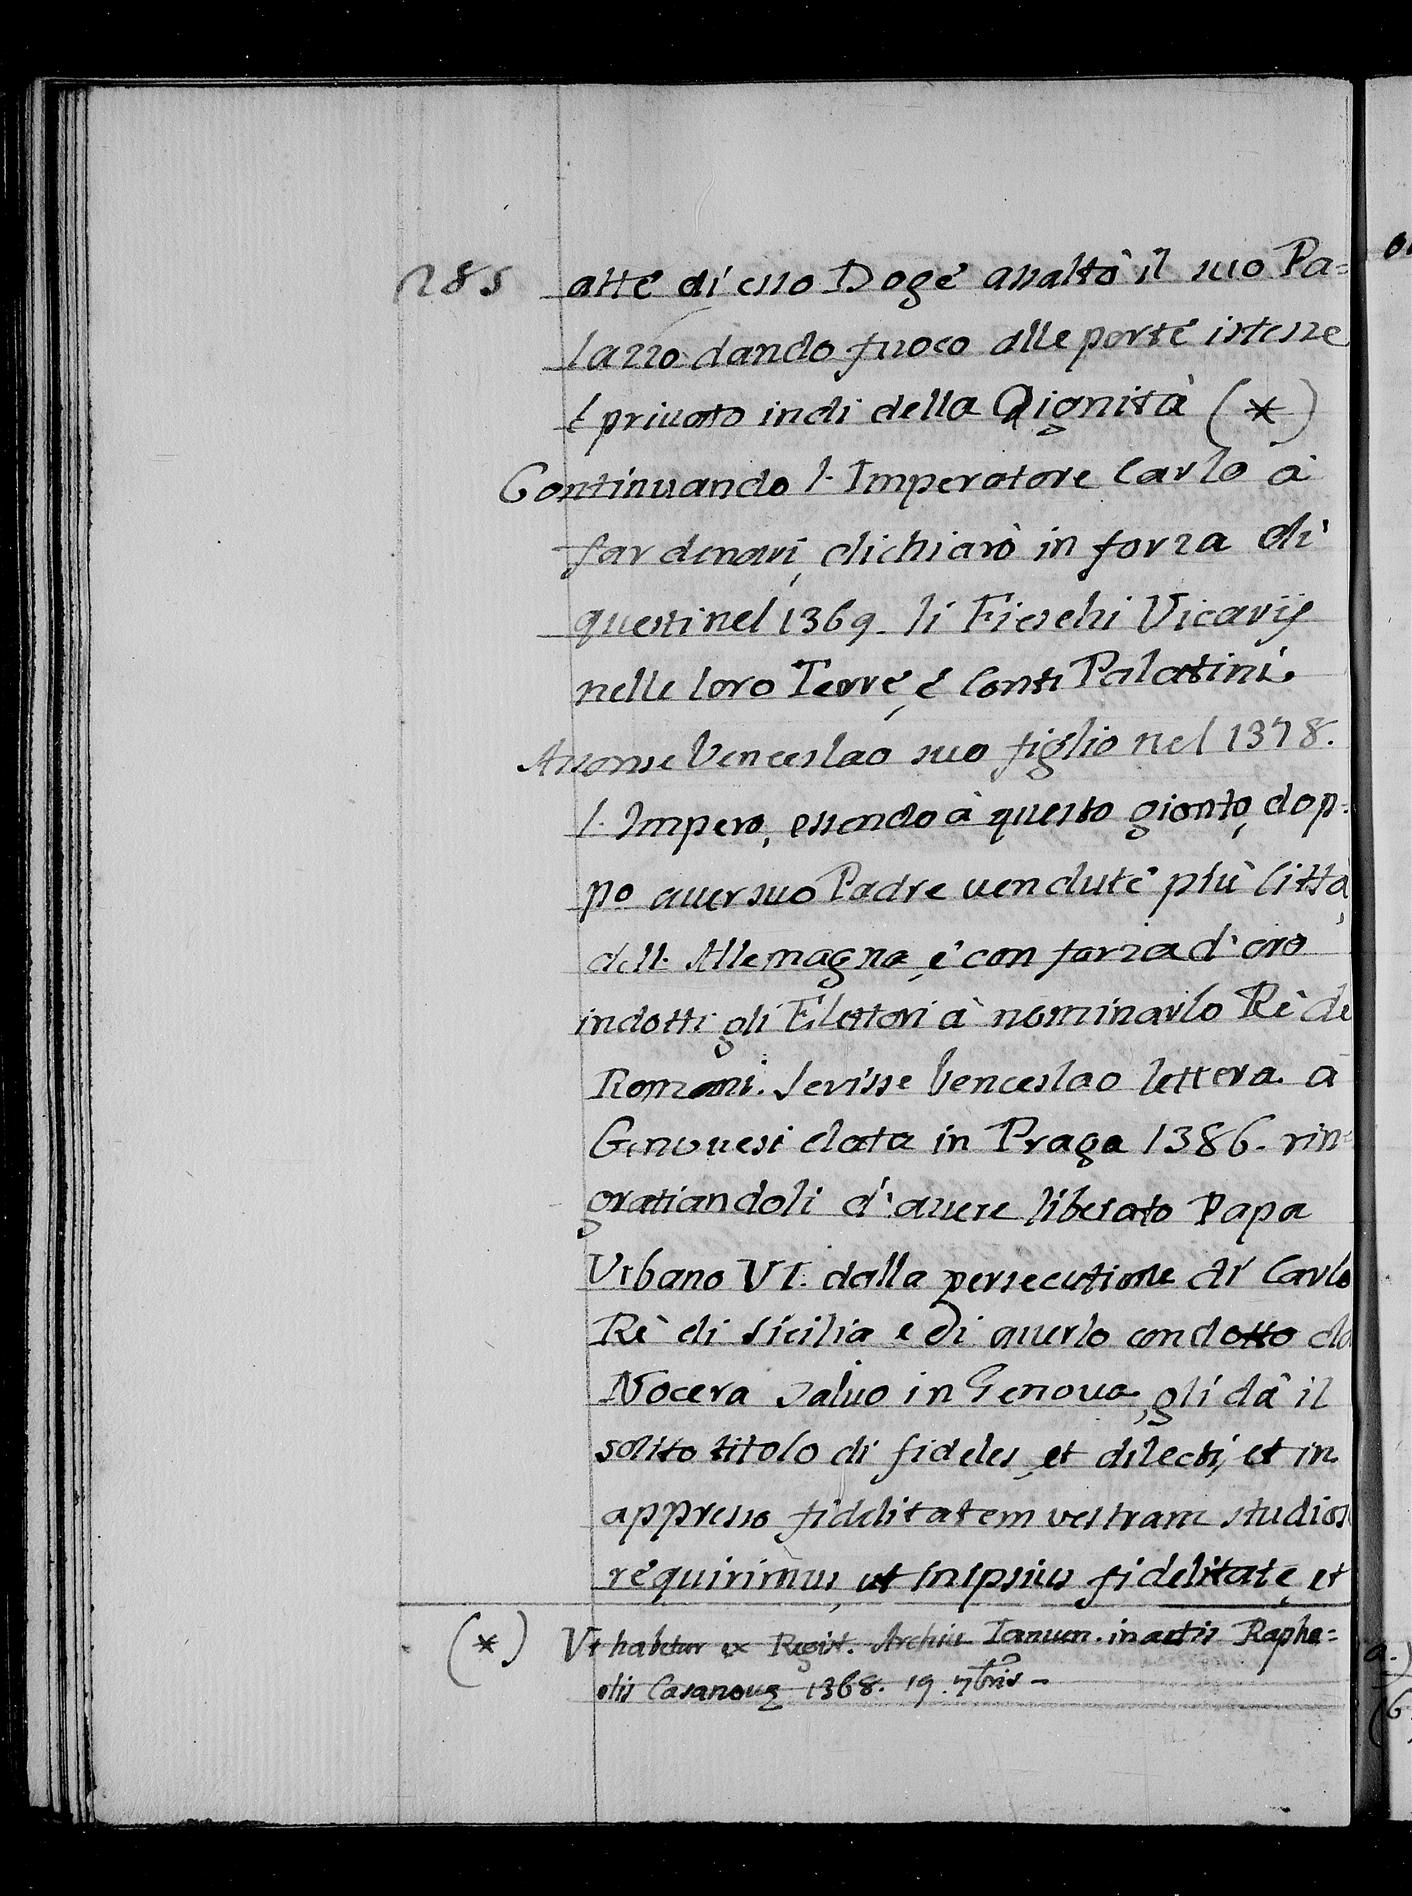 285
atte di esso Doge assaltò il suo Pa=
lazzo dando fuoco alle porte istesse
è privato indi della Dignità (*)
Continuando l'Imperatore Carlo à
far denari, dichiarò in forza di
questi nel 1369. li Fieschi Vicarij
nelle loro Terre, é Conti Palatini.
Assonse Venceslao suo figlio nel 1378.
l'Impero, essendo à questo gionto, dop=
po auer suo Padre uendute più Città
dell'Allemagna, é con forza d'oro
indotti gli Elettori à nominarlo Rè de
Romani. Scrisse Venceslao lettera à
Genouesi data in Praga 1386. rin=
gratiandoli d'auere liberato Papa
Urbano VI. dalla persecutione di Carlo
Rè di Sicilia e di auerlo condotto da
Nocera saluo in Genoua, gli dà il
solito titolo di fideles, et dilecti, et in
appresso fidelitatem vestram studios
requirimus, ut in ipsius fidelitate, et
(*) Vt habetur ex Regist. Archiu Ianuen. in actis Rapha=
elis Casanoua 1368. 19. 7bris -